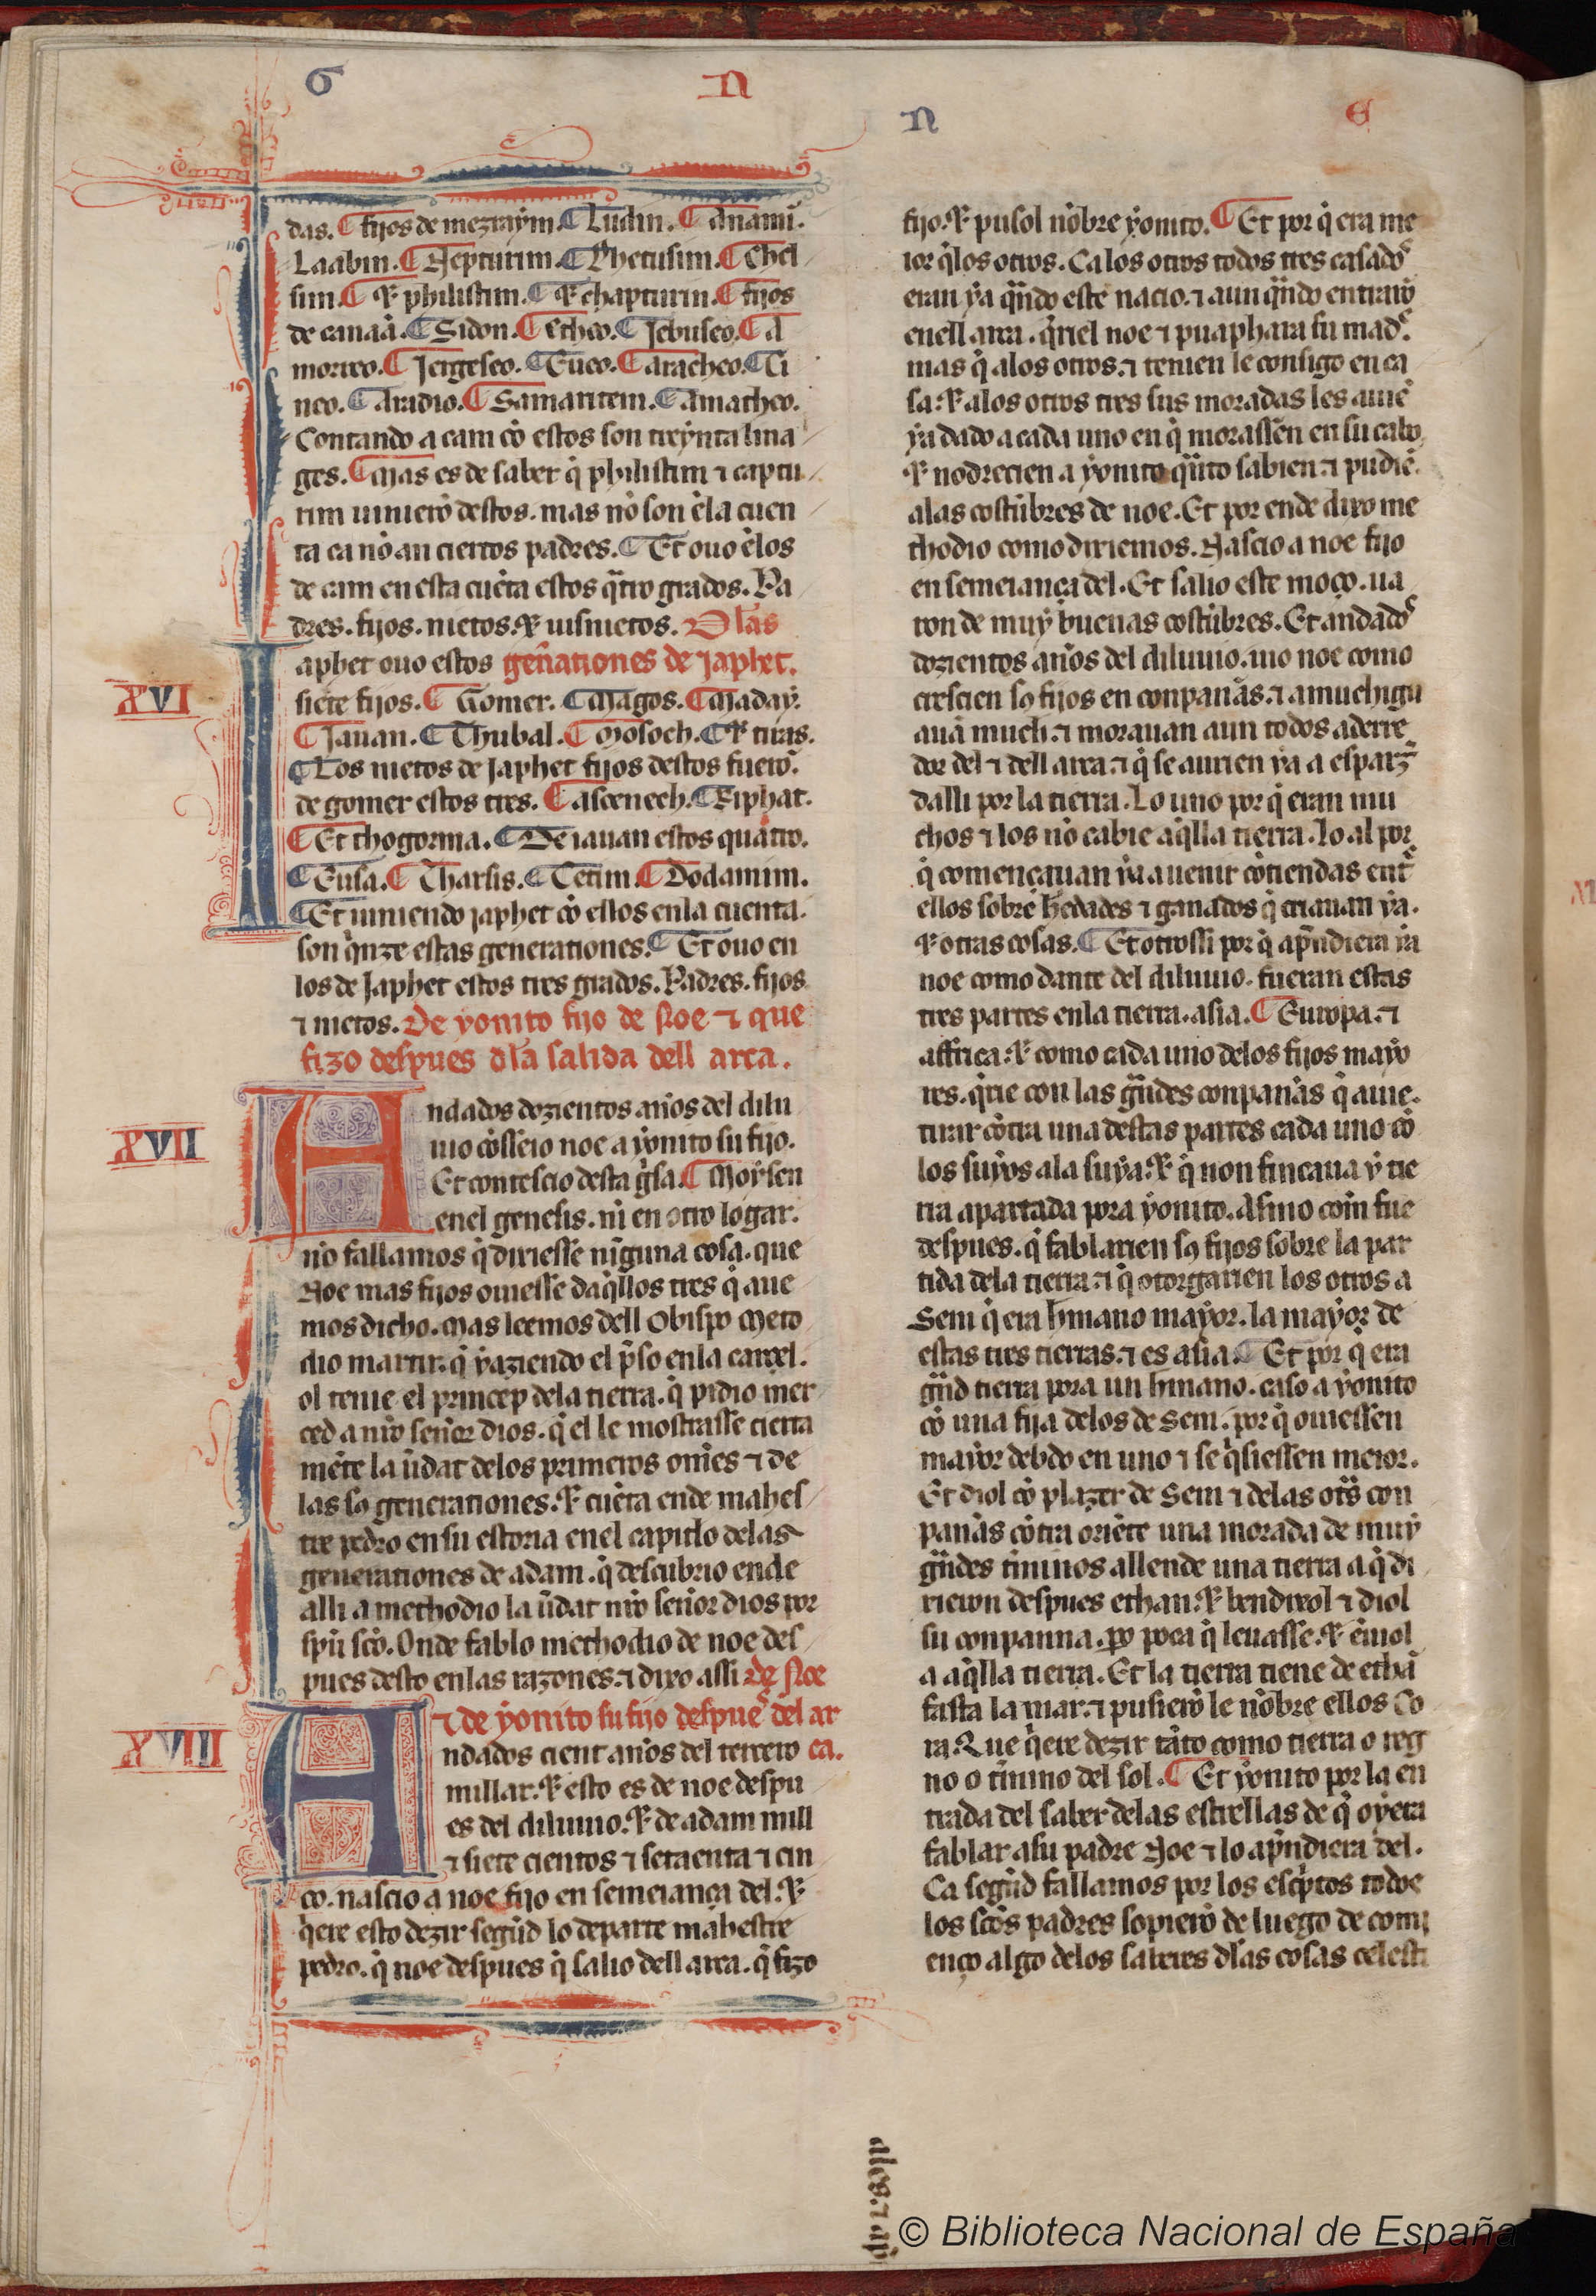 G N
N E
das. fijos de mezraẏm. Ludin. Anamĩ.
Laabin. Nepturim. Phetusim. Chel
sim. ⁊ philistim. ⁊ chapturin. fijos
de canaã. Sidon. Etheo. Jebuseo. A
morreo. Jergeseo. Eueo. Aracheo. Ci
neo. Aradio. Samaritem. Amatheo.
Contando a cam cõ estos son treẏnta lina
ges. Mas es de saber q̃ philistim ⁊ captu
rim uiniero᷑ destos. mas nõ son ẽla cuen
ta ca nõ an ciertos padres. Et ouo ẽlos
de cam en esta cuẽta estos q̃tro grados. Pa
dres. fijos. nietos. ⁊ uisnietos. Dlas
aphet ouo estos geñationes de japhet.
XVI
siete fijos. Gomer. Magos. Maday.
Jauan. Thubal. Mosoch. ⁊ tiras.
Los nietos de Japhet fijos destos fuerõ.
de gomer estos tres. Ascenech. Riphat.
Et thogorma. De iauan estos quatro.
Eusa. Tharsis. Cetim. Dodamim.
Et uiniendo japhet cõ estos enla cuenta.
son q̃nze estas generationes. Et ouo en
los de Japhet estos tres grados. Padres. fijos
⁊ nietos. De yonito fijo de Noe ⁊ que
fizo despues dla salida dell arca.
XVII
Andados dozientos años del dilu
uio cõsseio noe a ẏonito su fijo.
Et contescio desta g̃sa. Moẏsen
enel genesis. nĩ en otro logar.
nõ fallamos q̃ dixiesse nĩguna cosa. que
Noe mas fijos ouiesse daq̃llos tres q̃ aue
mos dicho. Mas leemos dell Obispo Meto
dio martir. q̃ ẏaziendo el p̃so enla carcel.
ol tenie el princep dela tierra. q̃ pidio mer
ced a nr̃o señor dios. q̃ el le mostrasse cierta
mẽte la ũdat delos primeros omẽs ⁊ de
las sꝯ generationes. ⁊ cuẽta ende mahes
tre pedro en su estoria enel capitlo delas
generationes de adam. q̃ descubrio ende
alli a methodio la ũdat nr̃o señor dios por
spũ sctõ. Onde fablo methodio de noe des
pues desto enlas razones. ⁊ dixo assi De Noe
⁊ de ẏonito su fijo despueˢ del ar
XVIII
Andados cient años del tercero ca.
millar. ⁊ esto es de noe despu
es del diluuio. ⁊ de adam mill
⁊ siete cientos ⁊ setaenta ⁊ cin
co. nascio a noe fijo en semeiança del. ⁊
q̃ere esto dezir segũd lo departe mahestre
pedro. q̃ noe despues q̃ salio dell arca. q̃ fizo
fijo. ⁊ pusol nõbre ẏonito. Et por q̃ era me
ior q̃los otros. Ca los otros todos tres casadoˢ
eran ẏa q̃ndo este nacio. ⁊ aun q̃ndo entrarõ
enell arca. q̃riel noe ⁊ puaphara su madᷣ.
mas q̃ alos otros. ⁊ tenien le consigo en ca
sa. ⁊ alos otros tres sus moradas les auiẽ
ẏa dado a cada uno en q̃ morassen en su cabo.
⁊ nodrecien a ẏonito q̃nto sabien. ⁊ pudiẽ.
alas costũbres de noe. Et por ende dixo me
thodio como dixiemos. Nascio a noe fijo
en semeiança del. Et salio este moço. ua
ron de muẏ buenas costũbres. Et andadoˢ
dozientos años del diluuio. uio noe como
crescien sꝯ fijos en conpañas. ⁊ amuchigu
auã much. ⁊ morauan aun todos aderre
dor del ⁊ dell arca. ⁊ q̃ se aurien ẏa a esparz̃
dalli por la tierra. Lo uno por q̃ eran mu
chos ⁊ los nõ cabie aq̃lla tierra. lo al por
q̃ començauan ẏa auenir cõtiendas ent᷑
ellos sobre hedades ⁊ ganados q̃ criauan ẏa.
⁊ otras cosas. Et otrossi por q̃ ap̃ndiera ẏa
noe como dante del diluuio. fueran estas
tres partes enla tierra. asia. Europa. ⁊
affrica. ⁊ como cada uno delos fijos mayo
res. q̃rie con las g̃ndes conpañas q̃ auie.
tirar cõtra una destas partes cada uno cõ
los suẏos ala suẏa. ⁊ q̃ non fincaua ẏ tie
rra apartada pora ẏonito. Asmo cõm fue
despues. q̃ fablarien sꝯ fijos sobre la par
tida dela tierra. ⁊ q̃ otorgarien los otros a
Sem q̃ era hm̃ano maẏor. la maẏor de
estas tres tierras. ⁊ es asia. Et por q̃ era
g̃nd tierra pora un hm̃ano. caso a ẏonito
cõ una fija delos de Sem. por q̃ ouiessen
maẏor debdo en uno ⁊ se q̃siessen meior.
Et diol cõ plazer de Sem ⁊ delas otᷣs con
pañas cõtra oriẽte una morada de muẏ
g̃ndes tr̃minos allende una tierra a q̃ di
xieron despues ethan. ⁊ bendixol ⁊ diol
su conpanna. ꝑo poca q̃ leuasse. ⁊ ẽuiol
a aq̃lla tierra. Et la tierra tiene de ethã
fasta la mar. ⁊ pusierõ le nõbre ellos Co
ra. Que q̃ere dezir tãto como tierra o reg
no o tr̃mino del sol. Et ẏonito por la en
trada del saber delas estrellas de q̃ oẏera
fablar asu padre Noe ⁊ lo ap̃ndiera del.
Ca segũd fallamos por los esc̃ptos todos
los sctõs padres sopierõ de luego de comi
enço algo delos saberes dlas cosas celesti
ales. ⁊ ap̃
© Biblioteca Nacional de España